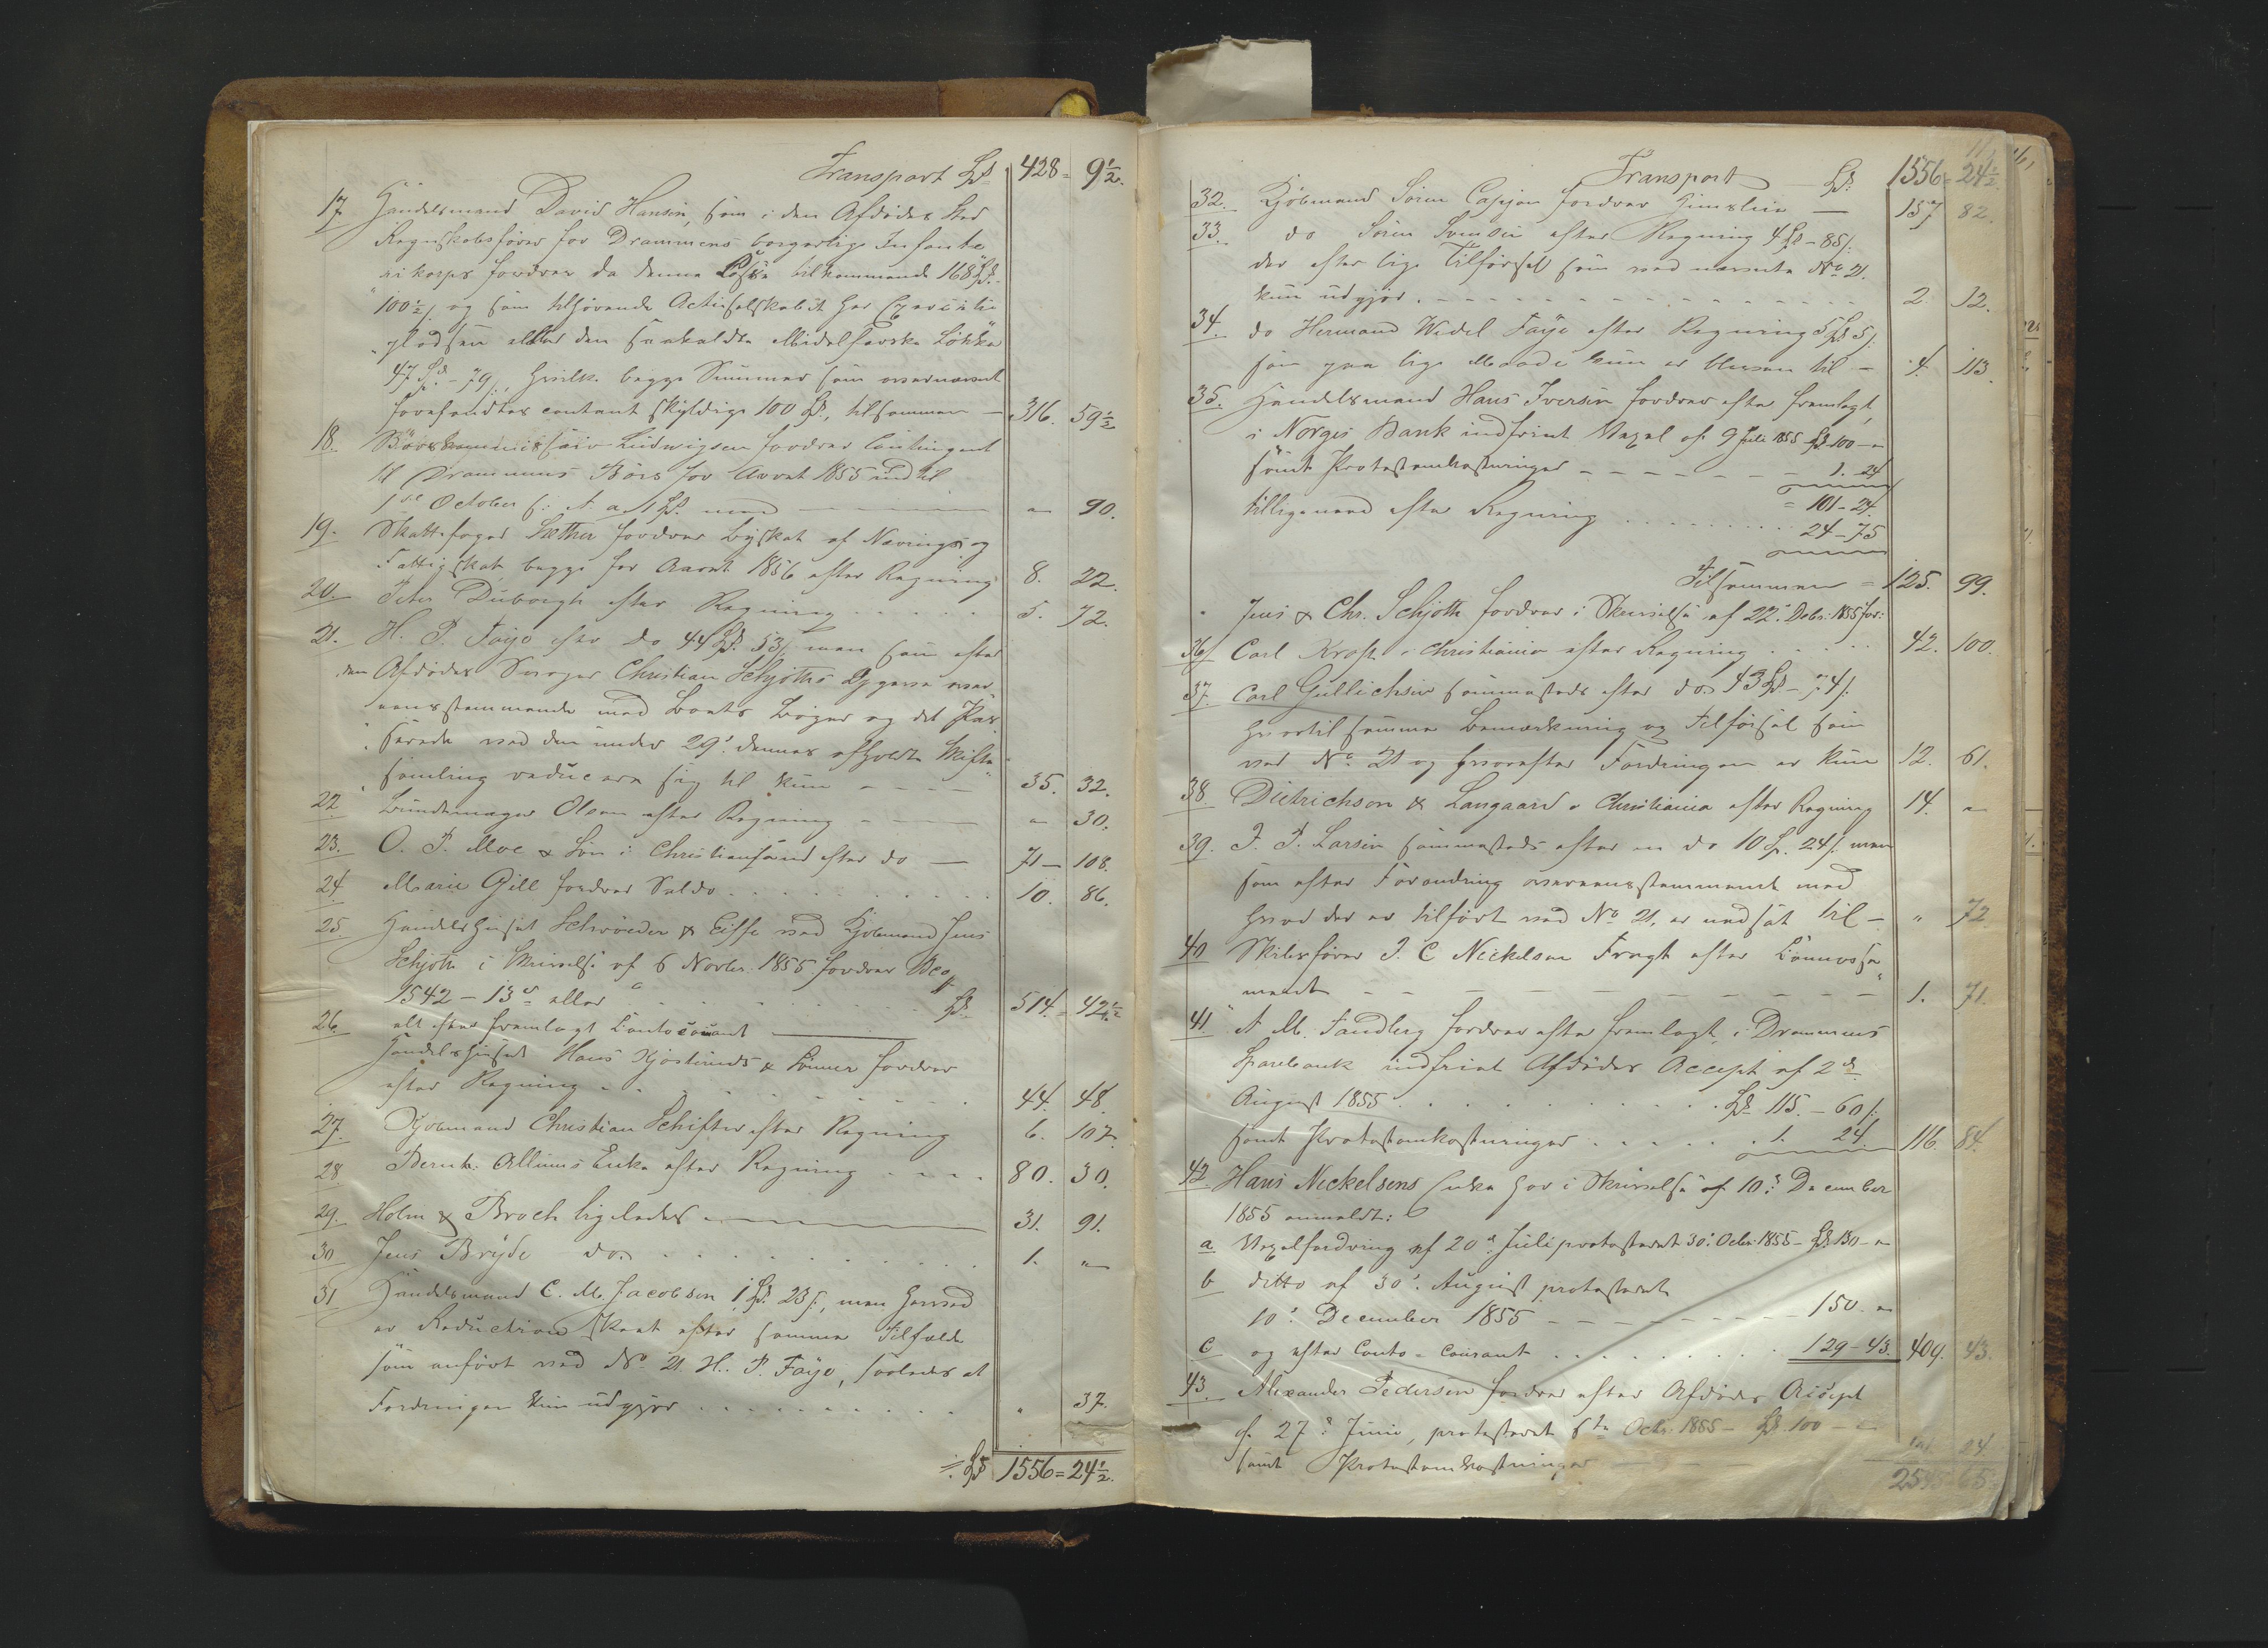 Transport Spd 428 = 9½.
17 Handelsmand David Hansen, som i den Afdødes Sted
Regnskabsfører for Drammens borgerlige Infante-
rikorps fordrer da denne Casse tilkommende 168 Spd.
100½ / og som tilhørende Actieselskabet for Exercitie
pladsen eller den saakaldte Midelfarske Løkke
47 Spd. - 79 /, hvilke begge Summer som overnævnt
contant skyldige 100 Spd., tilsammen — 316. 59½
18. Børskommissair Ludvigsen fordrer Contingent
til Drammens Børs for Aaret 1855 indtil
1ste October f: A. a 1 Spd. med — " 90.
19. Skattefoged Sæther fordrer Byskat af Nærings og
Fattigskat begge for Aaret 1856 efter Regning 8. 22.
20. Peter Duborgh efter Regning 5. 72.
21. H. P. Faye efter do 44 Spd. 53 /, men som efter
den Afdødes Svoger Christian Schjøths Opgave over
eensstemmende med Boets Bøger og det Pas
serede ved den under 29de dennes afholdte Skifte
samling reducere sig til kun — 35. 32.
22 Bundtmager Olsen efter Regning — " 30.
23. O. P. Moe & Søn i Christiansand efter do — 71 — 108.
24. Marie Gill fordrer Saldo 10. 86.
25. Handelshuset Schrøeder & Eiffe ved Kjøbmand Jens
Schjøth i Skrivelse af 6 Novbr. 1855 fordrer Bco
1542 - 13 s eller Spd. 514. = 42½
26. alt efter fremlagt Contocourant
Handelshuset Hans Kjøstruds & Sønner fordrer
efter Regning 44. 48.
27. Kjøbmand Christian Schifter efter Regning 6. 107.
28. Bernh. Allums Enke efter Regning 80. 30.
29. Holm & Broch ligeledes 31. 91.
30 Jens Bryde do 1. "
31 Handelsmand C. M. Jacobsen 1 Spd. 23 /, men herved
er Reduction skeet efter samme Tilfælde
som anført ved No 21 H. P. Faye, saaledes at
Fordringen kun udgjør " 37.
Spd 1556 = 24½.
Transport — Spd. 1556 = 24½.
32. Kjøbmand Søren Cappen fordrer — 157 82.
33. do Søren Svensen efter Regning 4 Spd - 85 /.
der efter lige Tilførsel som ved nævnte No 21
kun udgjør. 2. 12.
34. do Hermand Wedel Faye efter Regning 5 Spd 5 /.
som paa lige Maade kun er bleven til — 4. 113.
35. Handelsmand Hans Iversen fordrer efter fremlagt,
i Norges Bank indfriet Vexel af 9 Juli 1855 Spd 100 - "
samt Protestomkostninger — 1. 24
= 101 - 24.
tilligemed efter Regning 24 - 75
Tilsammen = 125. 99.
Jens & Chr. Schjøth fordrer i Skrivelse af 22de Decbr: 1855 for:
36/ Carl Kroft i Christiania efter Regning 42. 100.
37. Carl Gullichsen sammesteds efter do 13 Spd - 74 /.
hvortil samme Bemærkning og Tilførsel som
ved No 21 og hvorefter Fordringen er kun 12. 61.
38. Dietrichson & Langaard i Christiania efter Regning 14. "
39. J. P. Larsen sammesteds efter en do 10 Sp. 24 /. men
som efter Forandring overeensstemmende med
hvad der er tilført ved No 21, er nedsat til — " 72
40 Skibsfører J. C. Nickelsen Fragt efter Connosse
ment 1. 71.
41 A M. Sandberg fordrer efter fremlagt, i Drammens
Sparebank indfriet Afdødes Accept af 2den
August 1855 Spd. 115. - 60 /.
samt Protestomkostninger 1. 24. 116. 84.
42 Hans Nickelsens Enke har i Skrivelse af 10de December
1855 anmeldt:
a Vexelfordring af 20de Juli protesteret 30te Octbr 1855 - Spd 130 - "
b ditto af 30te August protesteret
10de December 1855 — 150. "
c og efter Conto-Courant 129 - 43. 409. 43.
43. Alexander Pedersen fordrer efter Afdødes Accept
af 27de Juni, protesteret Octbr. 1855 — Spd 100 - "
samt Protestomkostninger 24